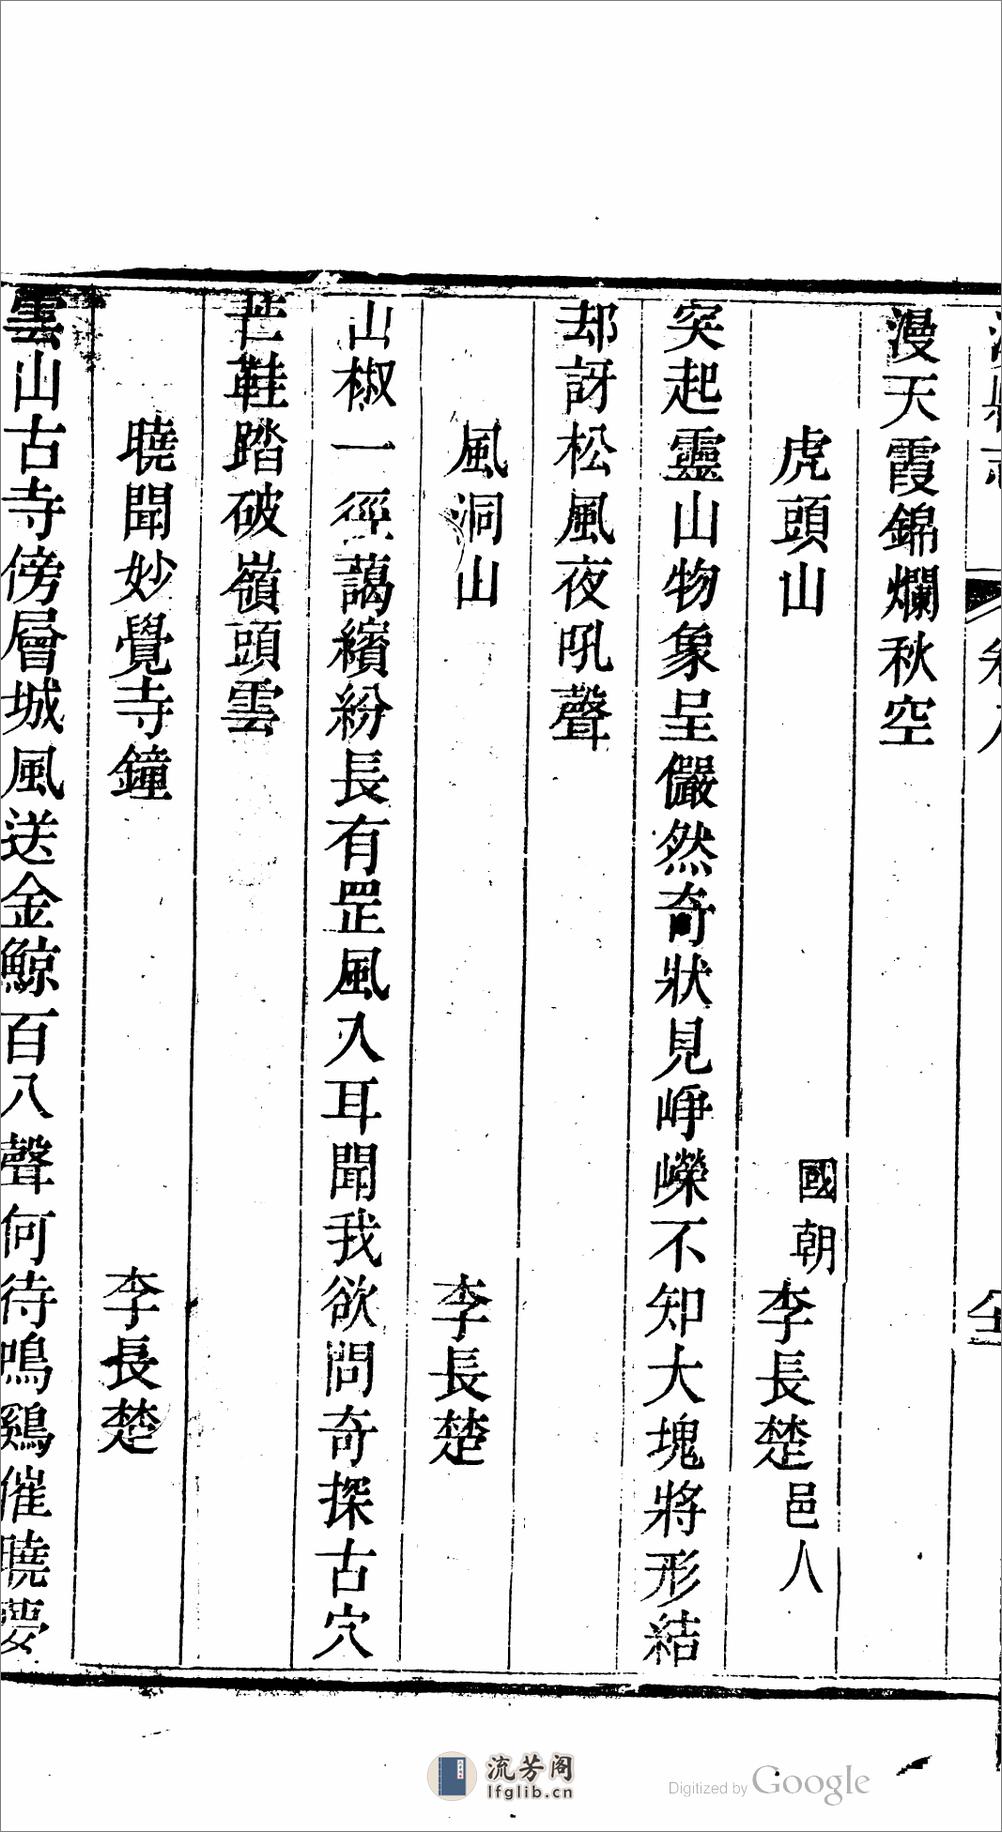 漫天霞錦爛秋空
虎頭山 國朝李長楚邑人
突起靈山物象呈儼然奇狀見崢嶸不知大塊將形結
却訝松風夜吼聲
風洞山 李長楚
山椒一徑藹繽紛長有罡風入耳聞我欲問奇探古穴
芒鞋踏破嶺頭雲
曉聞妙覺寺鐘 李長楚
雲山古寺傍層城風送金鯨百八聲何待鳴鷄催曉夢
流芳阁
lfglib.cn
Digitized by Google